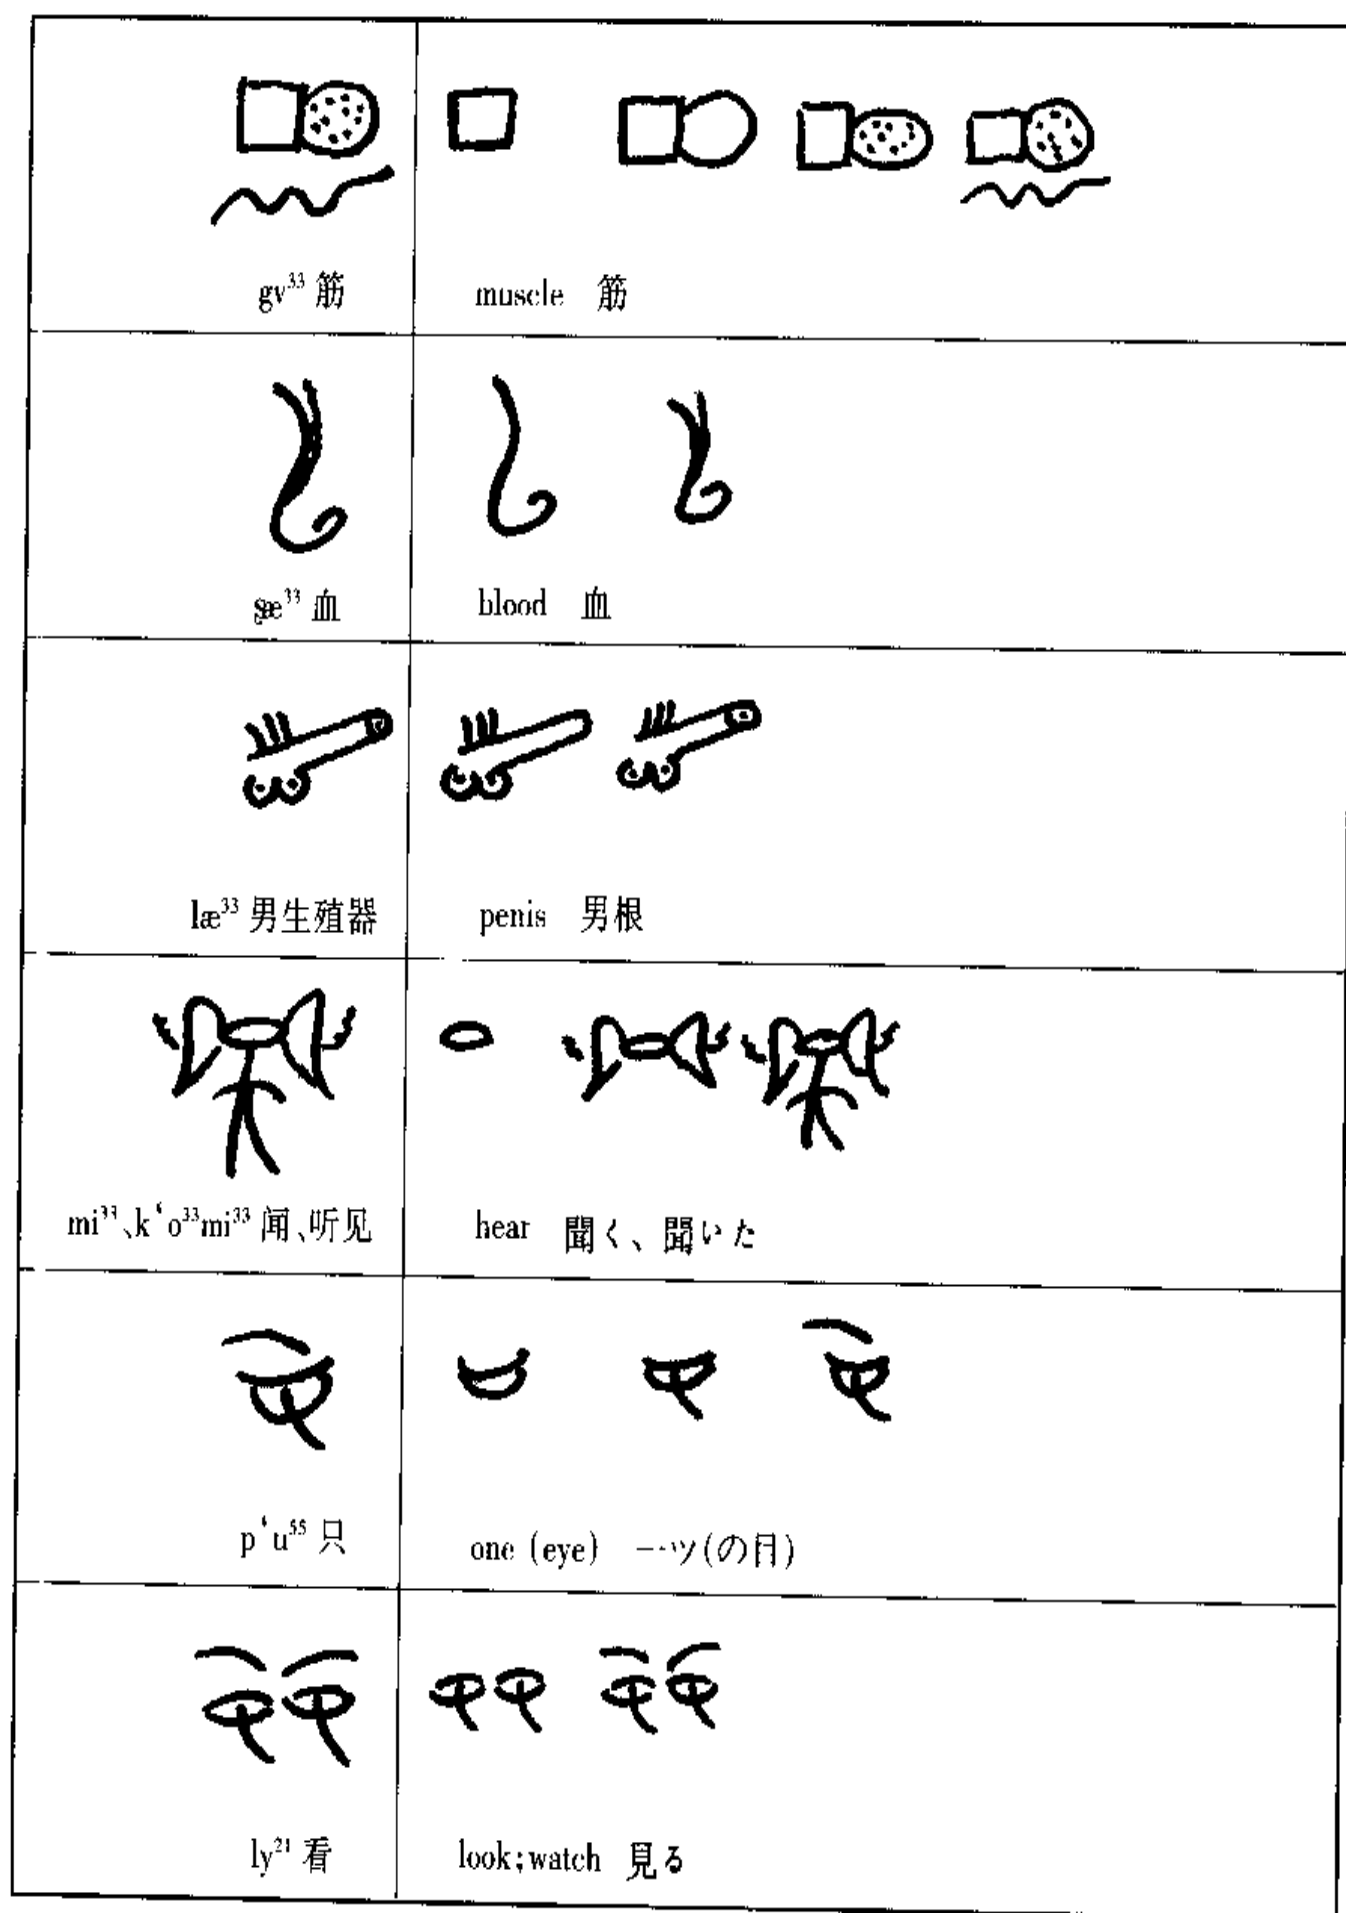 gv³³ 筋 muscle 筋
ʂæ³³ 血 blood 血
læ³³ 男生殖器 penis 男根
mi³³、kʻo³³mi³³ 闻、听见 hear 聞く、聞いた
pʻu⁵⁵ 只 one (eye) 一ツ(の目)
ly²¹ 看 look;watch 見る